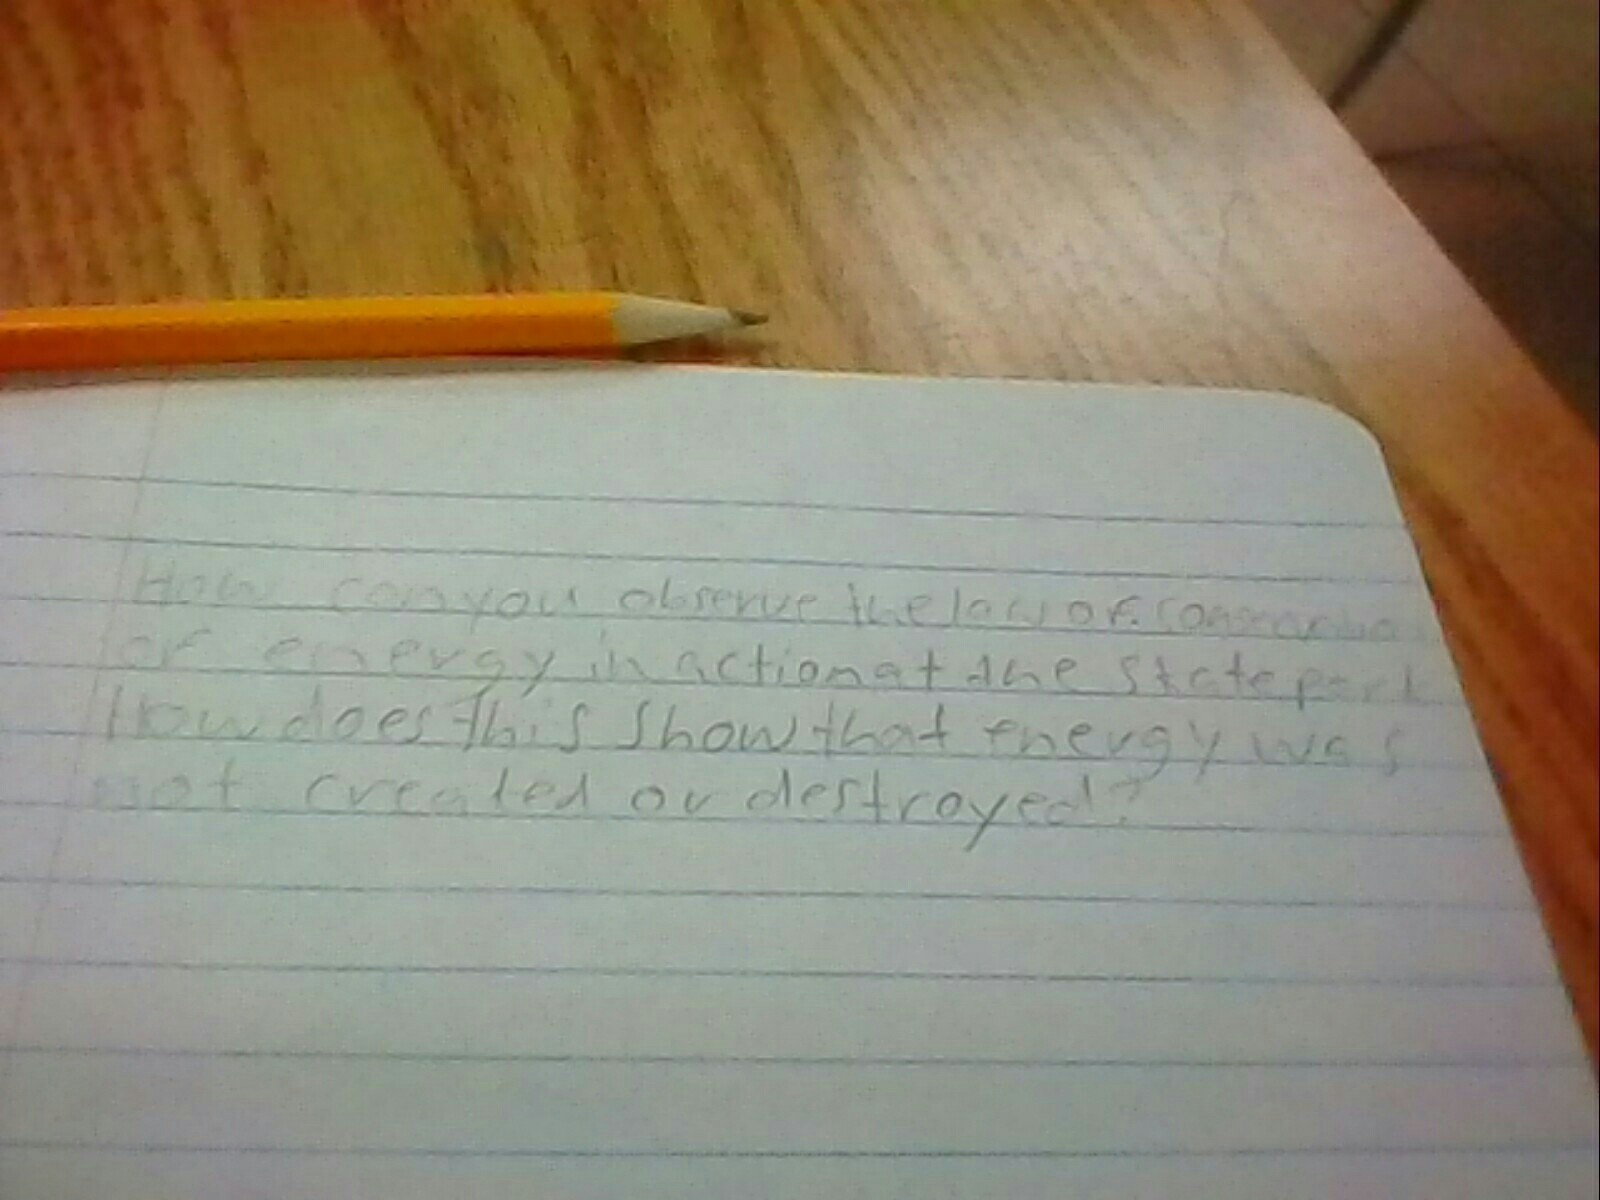 How can you observe the law of conservation
of energy in action at the State park
How does this show that energy was
not created or destroyed?